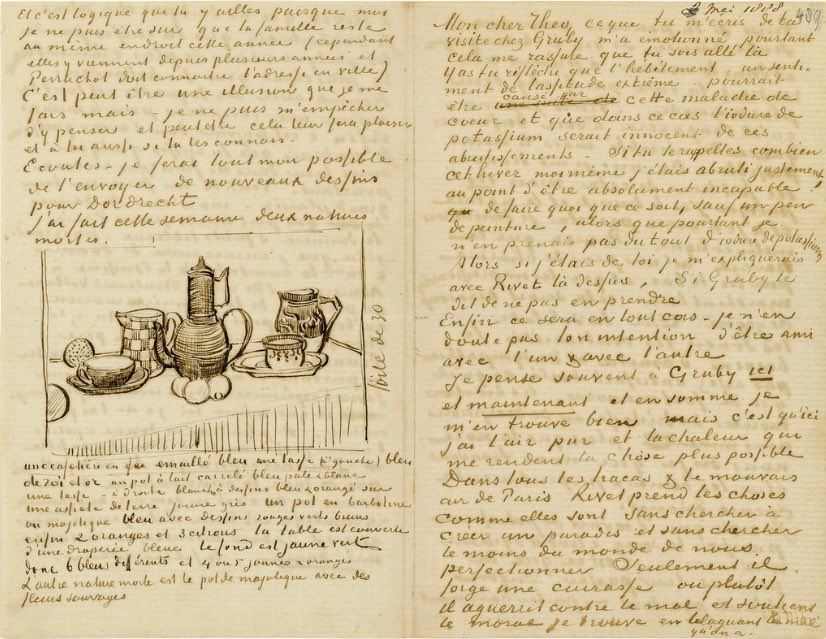 Et c'est logique que tu y ailles puisque moi
je ne puis être sûr que ta famille reste
au même endroit cette année (cependant
elles y viennent depuis plusieurs années et
Perruchot doit connaitre l'adresse en ville)
C'est peut être une illusion que je me
fais mais – je ne puis m'empêcher
d'y penser et peutetre cela leur fera plaisir
et à toi aussi si tu les connais.
Ecoutes – je ferai tout mon possible
de t'envoyer de nouveaux dessins
pour Dordrecht
J'ai fait cette semaine deux natures
mortes.
toile de 30
une cafetière en fer emaillé bleu une tasse (à gauche) bleu
de roi et or un pot à lait carrelé bleu pale & blanc
une tasse – à droite blanche dessins bleus & orangé sur
une assiete de terre jaune gris un pot en barbotine
ou majolique bleu avec dessins rouges verts bruns
enfin 2 oranges et 3 citrons la table est couverte
d'une draperie bleue le fond est jaune vert
donc 6 bleus différents et 4 ou 5 jaunes & orangés
L'autre nature morte est le pot de majolique avec des
fleurs sauvages
Mei 1888 489
Mon cher Theo, ce que tu m'ecris de ta
visite chez Gruby m'a émotionné pourtant
cela me rassure que tu sois allé là
Y as tu réflechi que l'hébètement – un senti-
ment de lassitude extrême – pourrait
être causé par une suite de cette maladie de
coeur et que dans ce cas l'iodure de
potassium serait innocent de ces
abrutissements – Si tu te rapelles combien
cet hiver moi même j'étais abruti justement
au point d'être absolument incapable
de faire quoi que ce soit, sauf un peu
de peinture, alors que pourtant je
n'en prenais pas du tout d'iodure de potassium
Alors si j'étais de toi je m'expliquerais
avec Rivet là dessus, Si Gruby te
dit de ne pas en prendre
Enfin ce sera en tout cas – je n'en
doute pas ton intention d'être ami
avec l'un & avec l'autre
Je pense souvent à Gruby ici
et maintenant et en somme je
m'en trouve bien mais c'est qu'ici
j'ai l'air pur et la chaleur qui
me rendent la chose plus possible
Dans tous les tracas & le mauvais
air de Paris Rivet prend les choses
comme elles sont sans chercher à
creer un paradis et sans chercher
le moins du monde de nous
perfectionner Seulement il
forge une cuirasse ou plutôt
il aguerrit contre le mal et soutient
le moral je trouve en blaguant le mal
qu'on a –